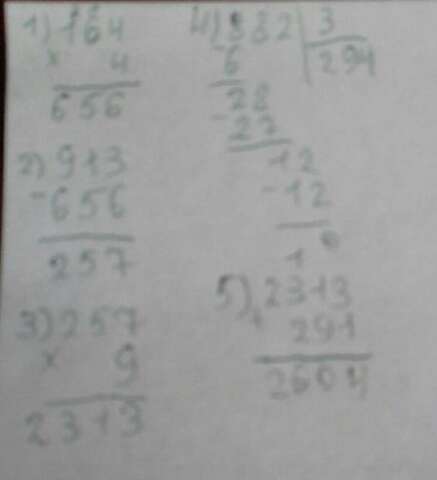 1) 164
× 4
656
2) 913
- 656
257
3) 257
× 9
2313
4) 882 | 3
- 6 | 294
28
- 27
12
- 12
0
5) 2313
+ 291
2604